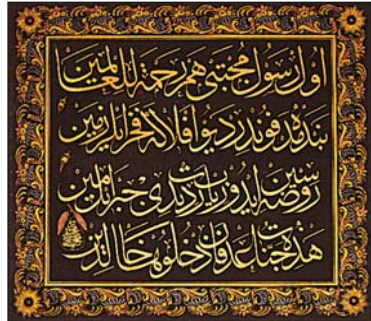 اول رسول مجتبی هم رحمة للعالمین
بنده مدفوندر دیو افلاکه فخر ایلر زمین
روضه سین ایدوب زیارت دیدی جبرائیل امین
هذه جنات عدن فادخلوها خالدین